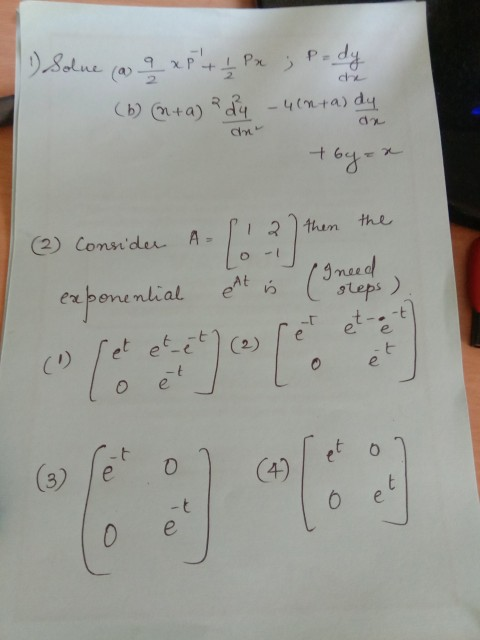 1) Solve (a) 9/2 x p^-1 + 1/2 Px ; P = dy/dx
(b) (x+a)^2 d^2y/dx^2 - 4(x+a) dy/dx
+ 6y = x
(2) Consider A = [1 2; 0 -1] then the
exponential e^At is (I need steps)
(1) [e^t e^t-e^-t; 0 e^-t] (2) [e^-t e^t-e^-t; 0 e^-t]
(3) [e^-t 0; 0 e^-t] (4) [e^t 0; 0 e^t]